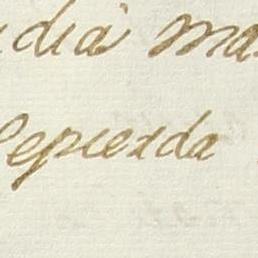 dia ma
Sepierda